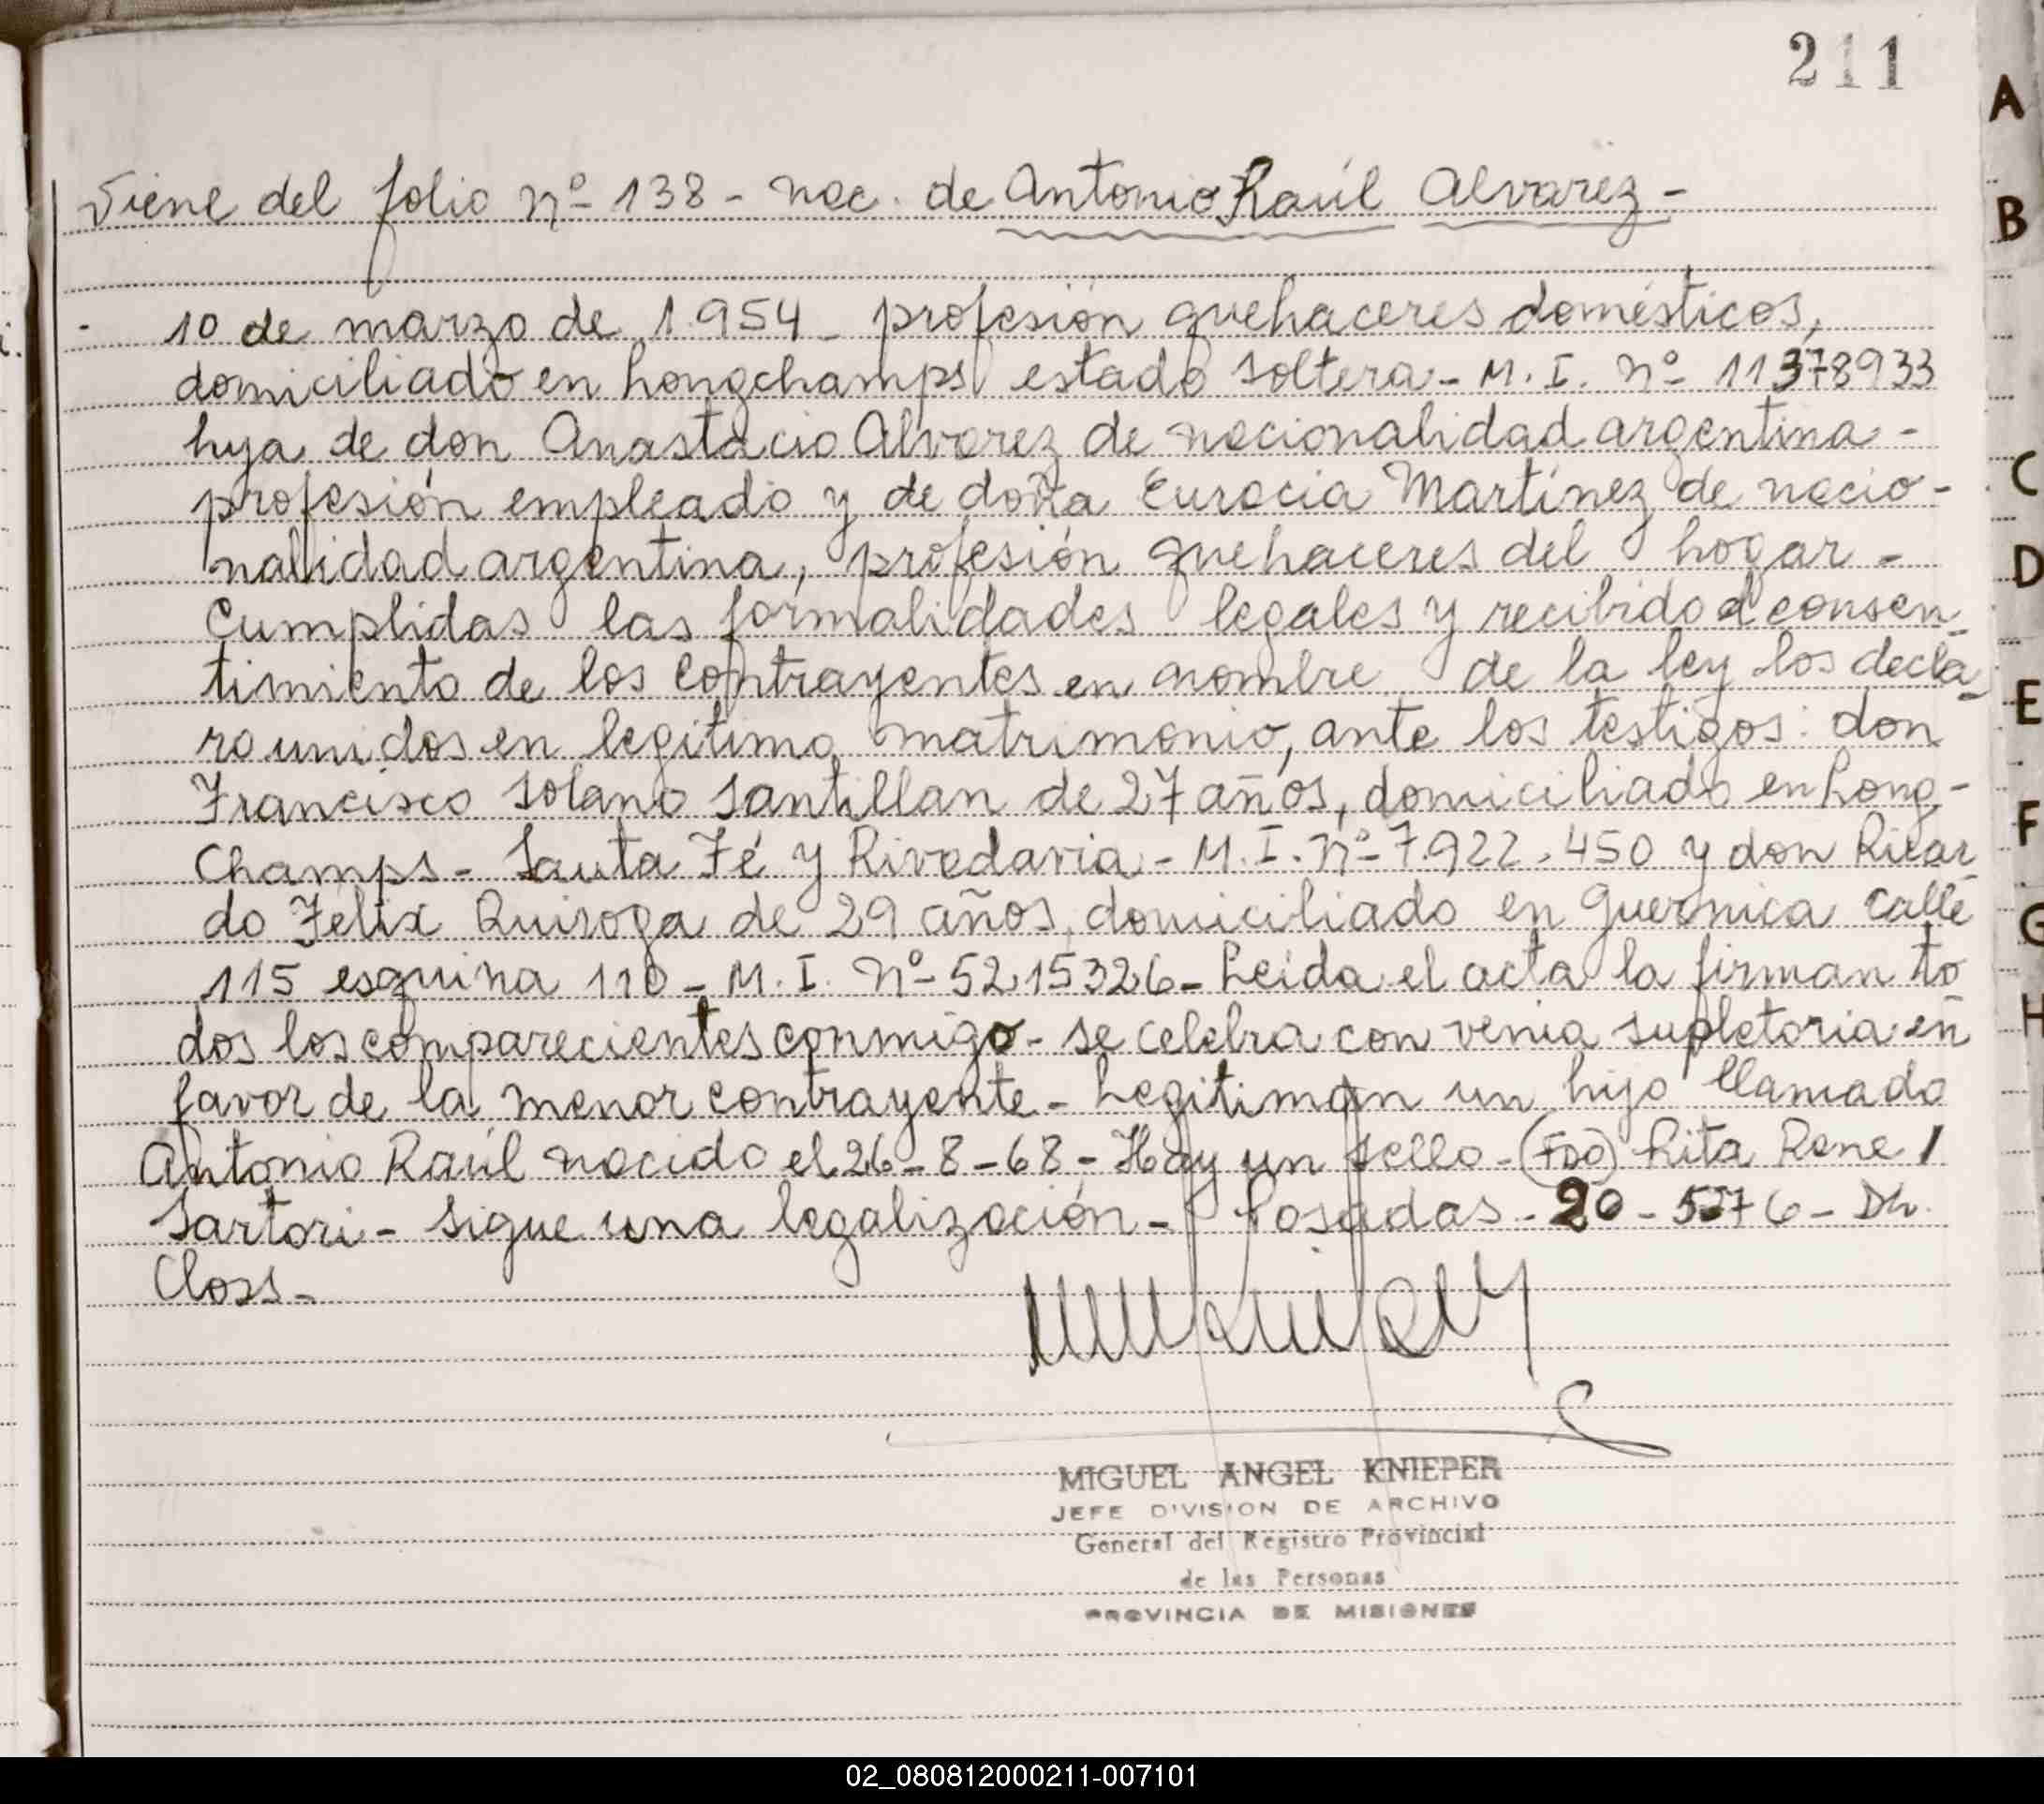 211
Viene del folio nº 138 - nac. de Antonio Raúl Alvarez -
10 de marzo de 1.954 - profesión quehaceres domésticos,
domiciliado en Longchamps estado soltera - M. I. nº 11378933
hija de don Anastacio Alvarez de nacionalidad argentina -
profesión empleado y de doña Euracia Martínez de nacio-
nalidad argentina, profesión quehaceres del hogar -
Cumplidas las formalidades legales y recibido el consen-
timiento de los contrayentes en nombre de la ley los decla-
ro unidos en legítimo matrimonio, ante los testigos: don
Francisco Solano Santillan de 27 años, domiciliado en Long-
Champs - Santa Fé y Rivadavia - M. I. nº 7.922.450 y don Ricar-
do Felix Quiroga de 29 años, domiciliado en Guernica calle
115 esquina 110 - M. I. nº 5215326 - Leida el acta la firman to
dos los comparecientes conmigo - se celebra con venia supletoria en
favor de la menor contrayente - Legitiman un hijo llamado
Antonio Raúl nacido el 26-8-68 - Hay un sello - (FDO) Rita Rene /
Sartori - sigue una legalización - Posadas - 20-5-76 - Dh.
Closs -
MIGUEL ANGEL KNIEPER
JEFE DIVISION DE ARCHIVO
General del Registro Provincial
de las Personas
PROVINCIA DE MISIONES
A
B
C
D
E
F
G
H
02_080812000211-007101